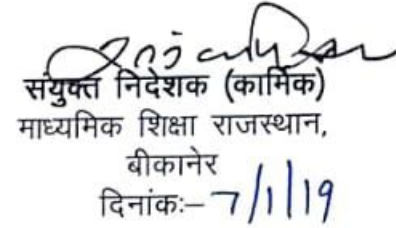 संयुक्त निदेशक (कार्मिक)
माध्यमिक शिक्षा राजस्थान,
बीकानेर
दिनांक:– 7/1/19